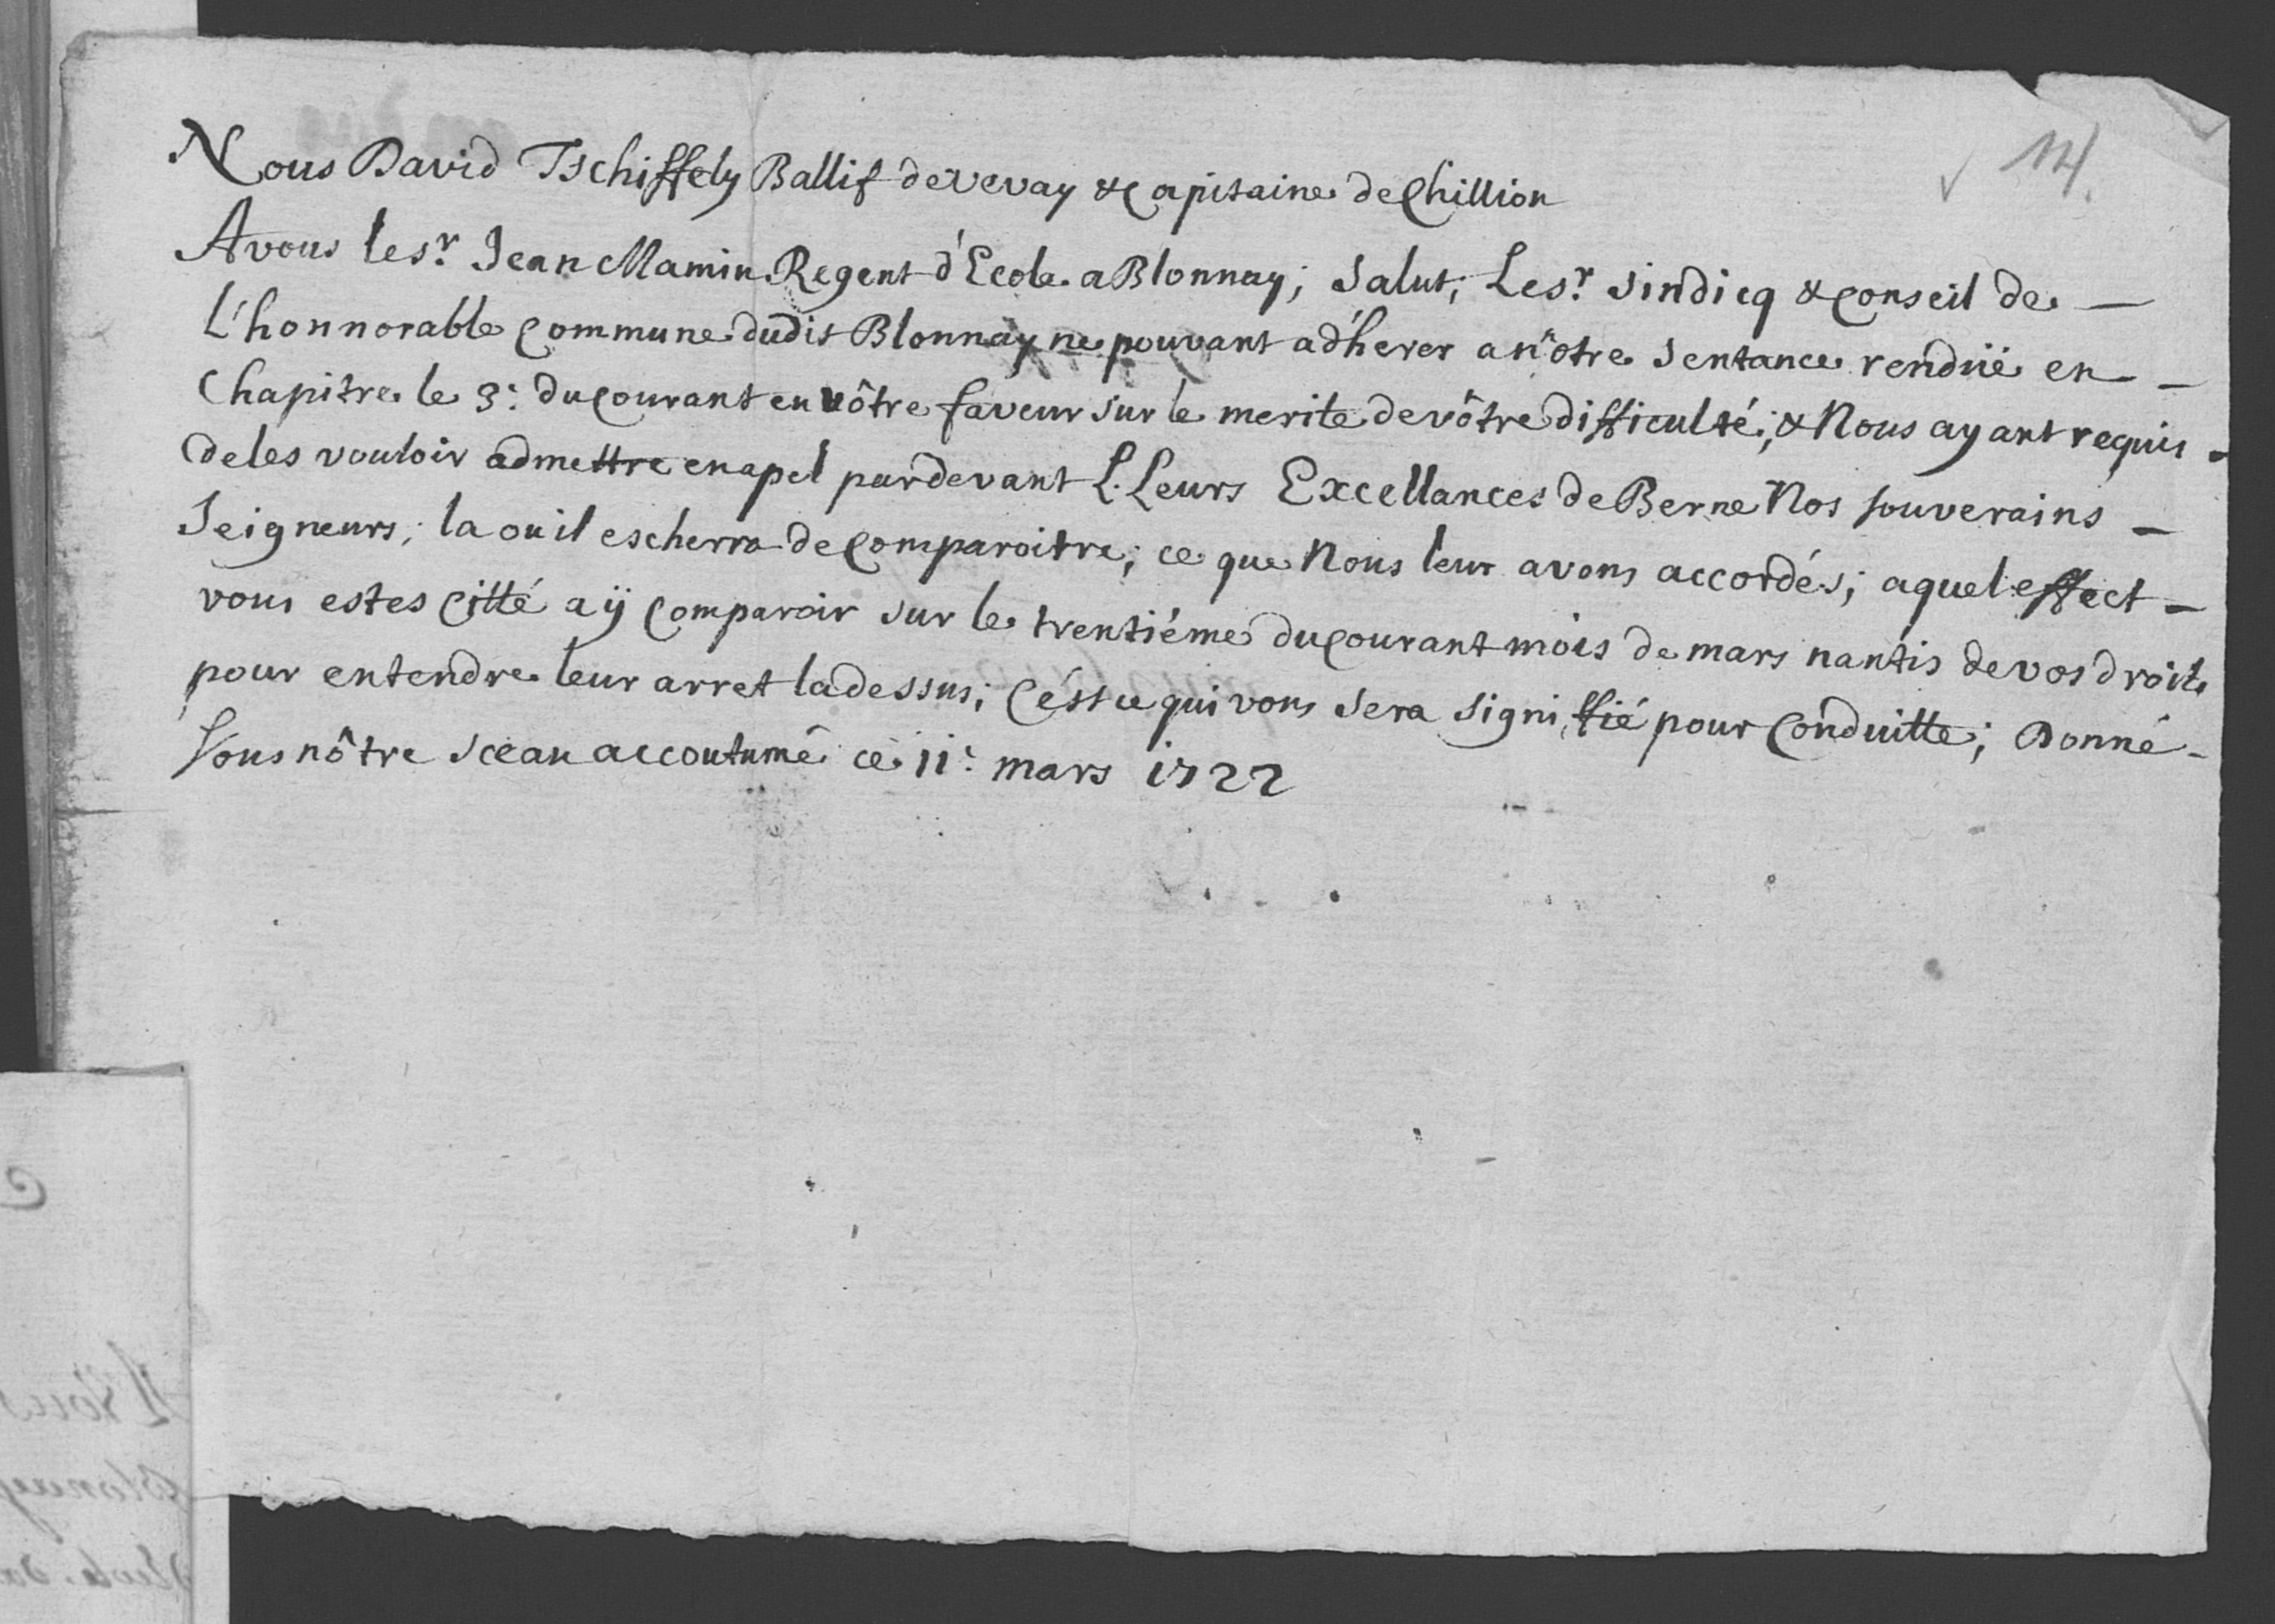 14.
Nous David Tschiffely Ballif de Vevay & Capitaine de Chillion
A vous le sr. Jean Mamin Regent d'Ecole a Blonnay; Salut; Les rs. Sindicq & Conseil de
L'honnorable Commune dudit Blonnay ne pouvant ad'herer a nôtre Sentance rendüe en
Chapitre le 3: du Courant en vôtre faveur sur le merite de vôtre difficulté; & Nous ayant requis
de les vouloir admettre en apel par devant L. Leurs Excellances de Berne Nos souverains
Seigneurs; la ou il escherra de Comparoitre; ce que Nous leur avons accordés; a quel effect
vous estes Citté a ÿ Comparoir sur le trentiéme du Courant mois de mars nantis de vos droits
pour entendre leur arret la dessus; C'ést ce qui vous sera signiffié pour Conduitte; Donné
sous nôtre sceau accoutumé ce 11: mars 1722